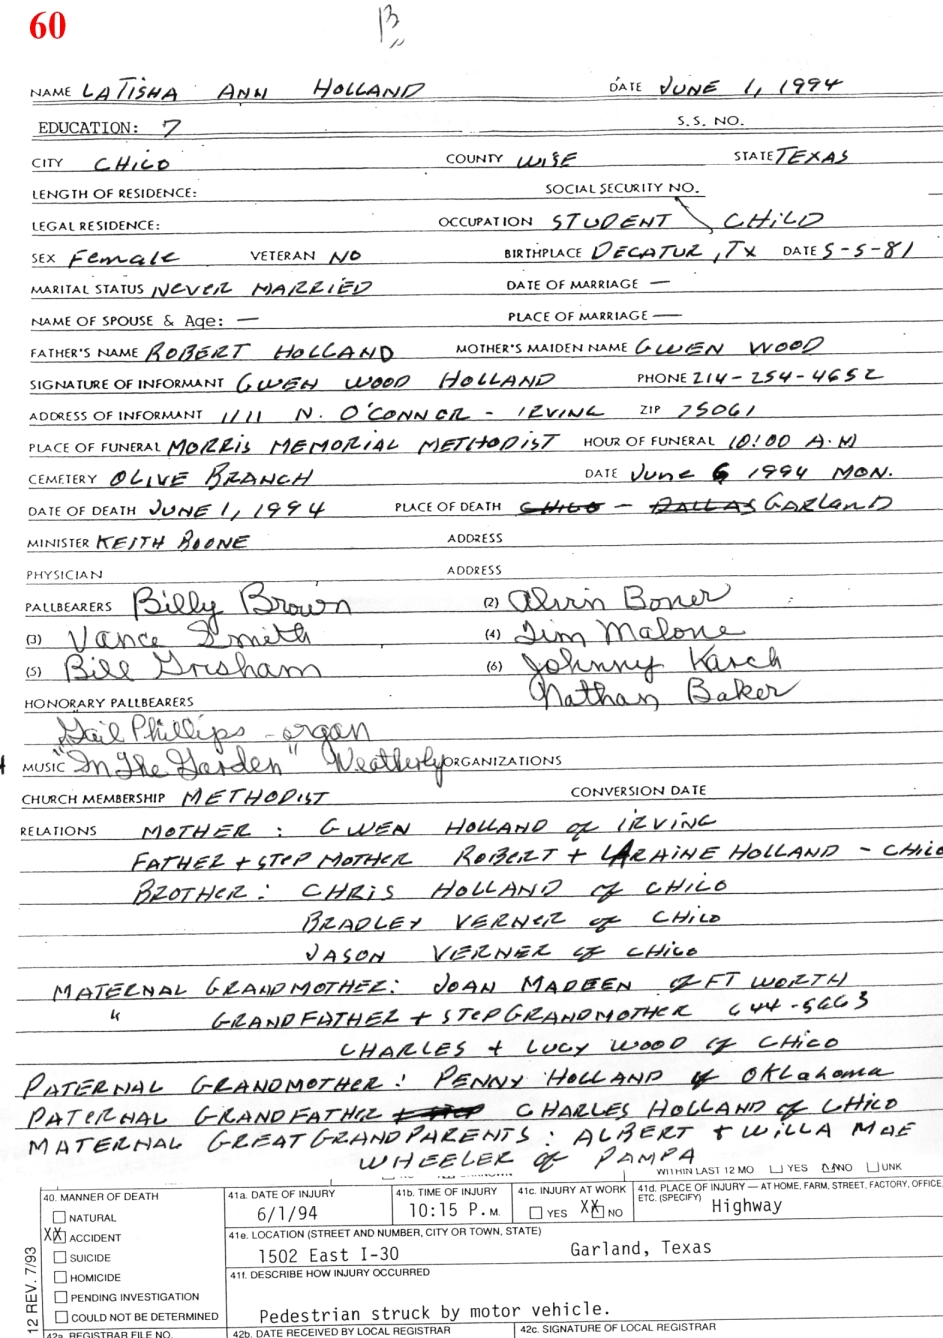 60
B
NAME LATISHA ANN HOLLAND DATE JUNE 1, 1994
EDUCATION: 7 S.S. NO.
CITY CHICO COUNTY WISE STATE TEXAS
LENGTH OF RESIDENCE: SOCIAL SECURITY NO.
LEGAL RESIDENCE: OCCUPATION STUDENT CHILD
SEX Female VETERAN NO BIRTHPLACE DECATUR, TX DATE 5-5-81
MARITAL STATUS NEVER MARRIED DATE OF MARRIAGE —
NAME OF SPOUSE & Age: — PLACE OF MARRIAGE —
FATHER'S NAME ROBERT HOLLAND MOTHER'S MAIDEN NAME GWEN WOOD
SIGNATURE OF INFORMANT GWEN WOOD HOLLAND PHONE 214-254-4652
ADDRESS OF INFORMANT 1111 N. O'CONNOR - IRVING ZIP 75061
PLACE OF FUNERAL MORRIS MEMORIAL METHODIST HOUR OF FUNERAL 10:00 A.M
CEMETERY OLIVE BRANCH DATE JUNE 6 1994 MON.
DATE OF DEATH JUNE 1, 1994 PLACE OF DEATH CHICO - DALLAS GARLAND
MINISTER KEITH BOONE ADDRESS
PHYSICIAN ADDRESS
PALLBEARERS Billy Brown (2) Alvin Boner
(3) Vance Smith (4) Jim Malone
(5) Bill Grisham (6) Johnny Karch
Nathan Baker
HONORARY PALLBEARERS
Gail Phillips - organ
MUSIC "In The Garden" Weatherly ORGANIZATIONS
CHURCH MEMBERSHIP METHODIST CONVERSION DATE
RELATIONS MOTHER: GWEN HOLLAND of IRVING
FATHER + STEP MOTHER ROBERT + LARAINE HOLLAND - CHICO
BROTHER: CHRIS HOLLAND of CHICO
BRADLEY VERNER of CHICO
JASON VERNER of CHICO
MATERNAL GRANDMOTHER: JOAN MADEEN of FT WORTH
" GRANDFATHER + STEPGRANDMOTHER 644-5663
CHARLES + LUCY WOOD of CHICO
PATERNAL GRANDMOTHER: PENNY HOLLAND of OKlahoma
PATERNAL GRANDFATHER + STEP CHARLES HOLLAND of CHICO
MATERNAL GREAT GRANDPARENTS: ALBERT + WILLA MAE
WHEELER of PAMPA
WITHIN LAST 12 MO YES XNO UNK
40. MANNER OF DEATH 41a. DATE OF INJURY 41b. TIME OF INJURY 41c. INJURY AT WORK 41d. PLACE OF INJURY — AT HOME, FARM, STREET, FACTORY, OFFICE,
ETC. (SPECIFY) Highway
NATURAL 6/1/94 10:15 P.M. YES XX NO
XX ACCIDENT 41e. LOCATION (STREET AND NUMBER, CITY OR TOWN, STATE)
SUICIDE 1502 East I-30 Garland, Texas
HOMICIDE 41f. DESCRIBE HOW INJURY OCCURRED
PENDING INVESTIGATION
COULD NOT BE DETERMINED Pedestrian struck by motor vehicle.
12 REV. 7/93
42a. REGISTRAR FILE NO. 42b. DATE RECEIVED BY LOCAL REGISTRAR 42c. SIGNATURE OF LOCAL REGISTRAR